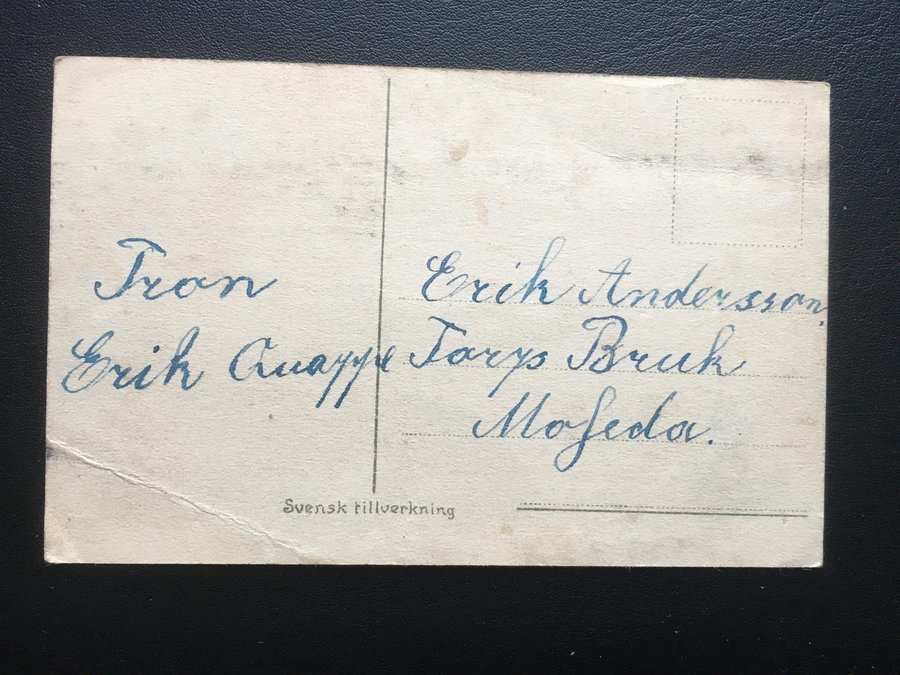 Fron
Erik Quappe
Erik Andersson.
Torps Bruk
Moheda.
Svensk tillverkning